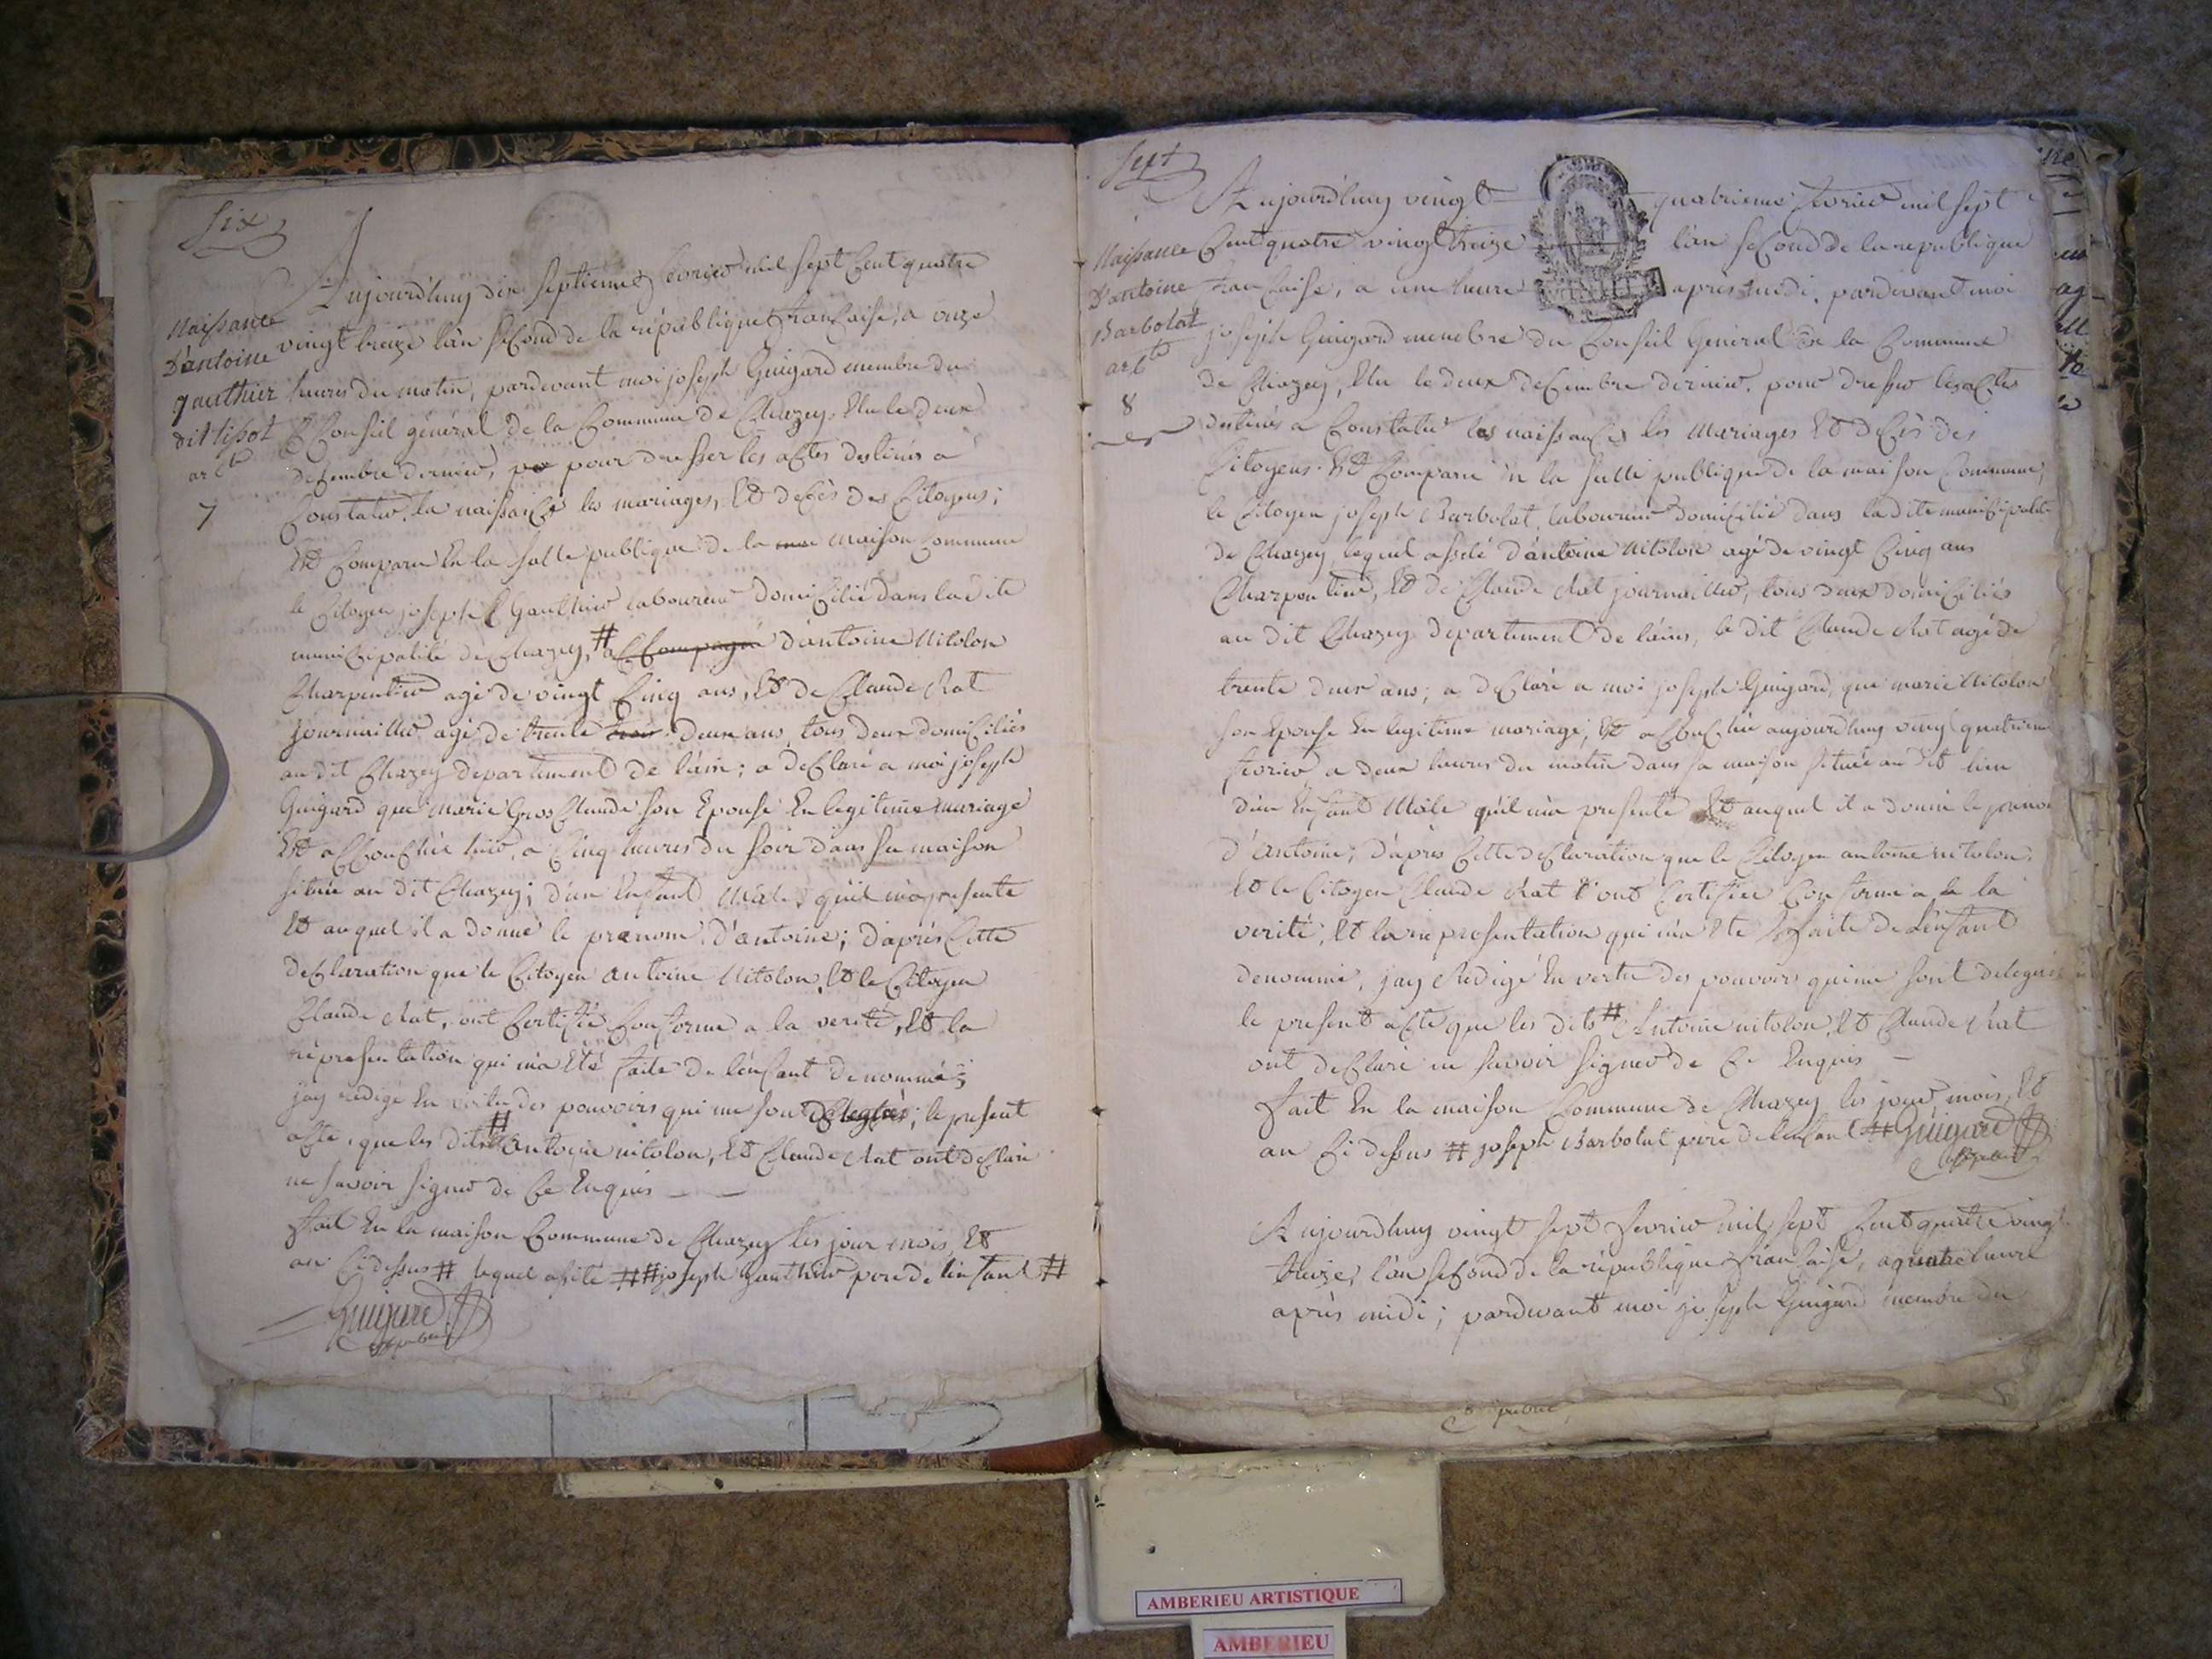 Six
Naissance
D'antoine
gauthier
dit tissot
artle
7
Aujourd'huy dix septieme fevrier mil sept Cent quatre
vingt treize l'an second de la république francaise, a onze
heures du matin, pardevant moi joseph Guigard membre du
Conseil général de la Commune de Chazey. Elu le deux
decembre dernier, po pour dresser les actes destinés à
Constater la naissance les mariages, Et décès des Citoyens;
Est Comparu En la salle publique de la mai maison Commune
le Citoyen joseph Gauthier laboureur domicilié dans la dite
municipalité de Chazey, # accompagné d'antoine Nitolon
Charpentier agé de vingt Cinq ans, Et de Claude Rat
journaillier agé de trente trois deux ans, tous deux domiciliés
au dit Chazey departiment de l'ain; a declaré a moi joseph
Guigard que marie Gros Claude son Epouse En legitime mariage
Est accouchée hier, a Cinq heures du soir dans sa maison
située au dit Chazey; d'un Enfant Mâle qu'il m'a presenté
Et auquel il a donné le prenom d'antoine; d'après Cette
declaration que le Citoyen antoine Nitolon, Et le Citoyen
Claude Rat, ont Certifié Conforme a la verité, Et la
représentation qui m'a Eté faite de l'enfant dénommé;
jay redigé En vertu des pouvoirs qui me sont délégués; le present
acte, que les dits # antoine nitolon, Et Claude Rat ont declaré
ne savoir signer de Ce Enquis
fait En la maison Commune de Chazey les jour mois, Et
an Ci dessus # lequel assité ## joseph gauthier pere de l'enfant #
Guigard
off public
Sept
Naissance
D'antoine
Barbolat
artle
8
Aujourd'huy vingt quatrieme fevrier mil sept
Cent quatre vingt treize l'an second de la republique
francaise, a une heure après midi, pardevant moi
joseph Guigard membre du Conseil Général de la Commune
de Chazey, Elu le deux decembre dernier, pour dresser les actes
destinés a Constater les naissances les Mariages Et décès des
Citoyens. Est Comparu En la salle publique de la maison Commune,
le Citoyen joseph Barbolat, laboureur domicilié dans la dite municipalité
de Chazey lequel assité d'antoine Nitolon agé de vingt Cinq ans
Charpentier, Et de Claude Rat journaillier, tous deux domiciliés
au dit Chazey departement de l'ain, le dit Claude Rat agé de
trente deux ans; a declaré a moi joseph Guigard, que marie Nitolon
son Epouse En legitime mariage, Est accouchée aujourdhuy vingt quatrieme
fevrier a deux heures du matin dans sa maison située au dit lieu
d'un Enfant Mâle qu'il m'a presenté Et auquel il a donné le prenom
d'Antoine; d'après Cette declaration que le Citoyen antoine nitolon,
Et le Citoyen Claude Rat ont Certifiée Conforme a la
verité, Et la représentation qui m'a Eté faite de L'enfant
denommé, jay Redigé En vertu des pouvoirs qui me sont delegués
le present acte que les dits # Antoine nitolon, Et Claude Rat
ont declaré ne savoir signer de Ce Enquis
fait En la maison Commune de Chazey les jour mois, Et
an Ci dessus # joseph Barbolat pere de l'enfant # Guigard
off public
Aujourdhuy vingt sept fevrier mil sept Cent quatre vingt
treize, l'an second de la république francaise, a quatre heure
après midi; pardevant moi joseph Guigard membre du
public
AMBERIEU ARTISTIQUE
AMBERIEU